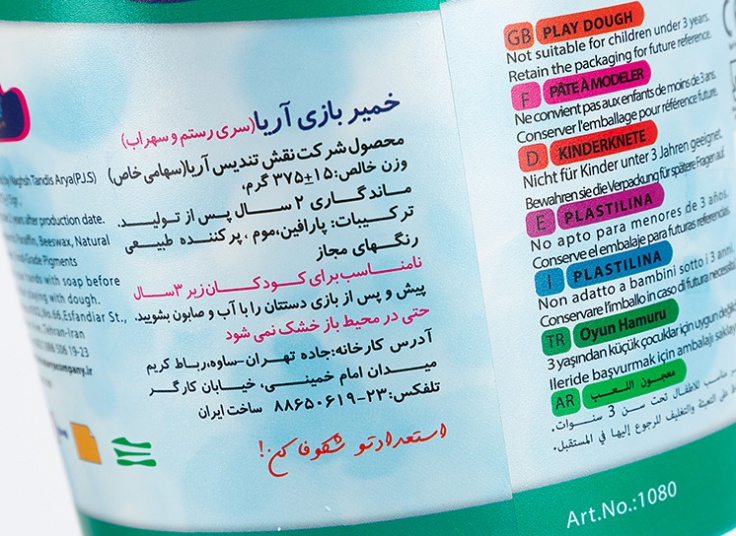 خمیر بازی آریا(سری رستم و سهراب)
محصول شرکت نقش تندیس آریا(سهامی خاص)
وزن خالص:۱۵±۳۷۵ گرم،
ماندگاری ۲ سال پس از تولید.
ترکیبات: پارافین،موم ، پرکننده طبیعی
رنگهای مجاز
نامناسب برای کودکان زیر ۳سال
پیش و پس از بازی دستتان را با آب و صابون بشویید.
حتی در محیط باز خشک نمی شود
آدرس کارخانه:جاده تهران-ساوه،رباط کریم
میدان امام خمینی، خیابان کارگر
تلفکس:۲۳-۸۸۶۵۰۶۱۹ ساخت ایران
استعدادتو شکوفا کن!
Naghsh Tandis Arya(P.J.S)
years after production date.
Paraffin, Beeswax, Natural
Food-Grade Pigments
hands with soap before
playing with dough.
No.66.Esfandiar St.,
Tehran-Iran
506 19-23
GB PLAY DOUGH
Not suitable for children under 3 years.
Retain the packaging for future reference.
F PÂTE À MODELER
Ne convient pas aux enfants de moins de 3 ans.
Conserver l'emballage pour référence future.
D KINDERKNETE
Nicht für Kinder unter 3 Jahren geeignet.
Bewahren sie die Verpackung für spätere Fragen auf.
E PLASTILINA
No apto para menores de 3 años.
Conserve el embalaje para futuras referencias.
I PLASTILINA
Non adatto a bambini sotto i 3 anni.
Conservare l'imballo in caso di futura necessità
TR Oyun Hamuru
3 yaşından küçük çocuklar için uygun değil
Ileride başvurmak için ambalajı
AR معجون اللعب
مناسب للاطفال تحت سن 3 سنوات.
التعبئة والتغليف للرجوع إليها في المستقبل.
Art.No.:1080